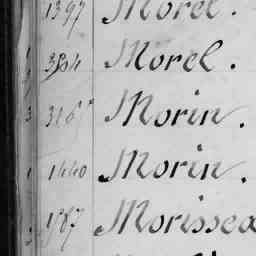 1397 Morel.
3804 Morel.
Morin.
1440 Morin.
1587 Morissea